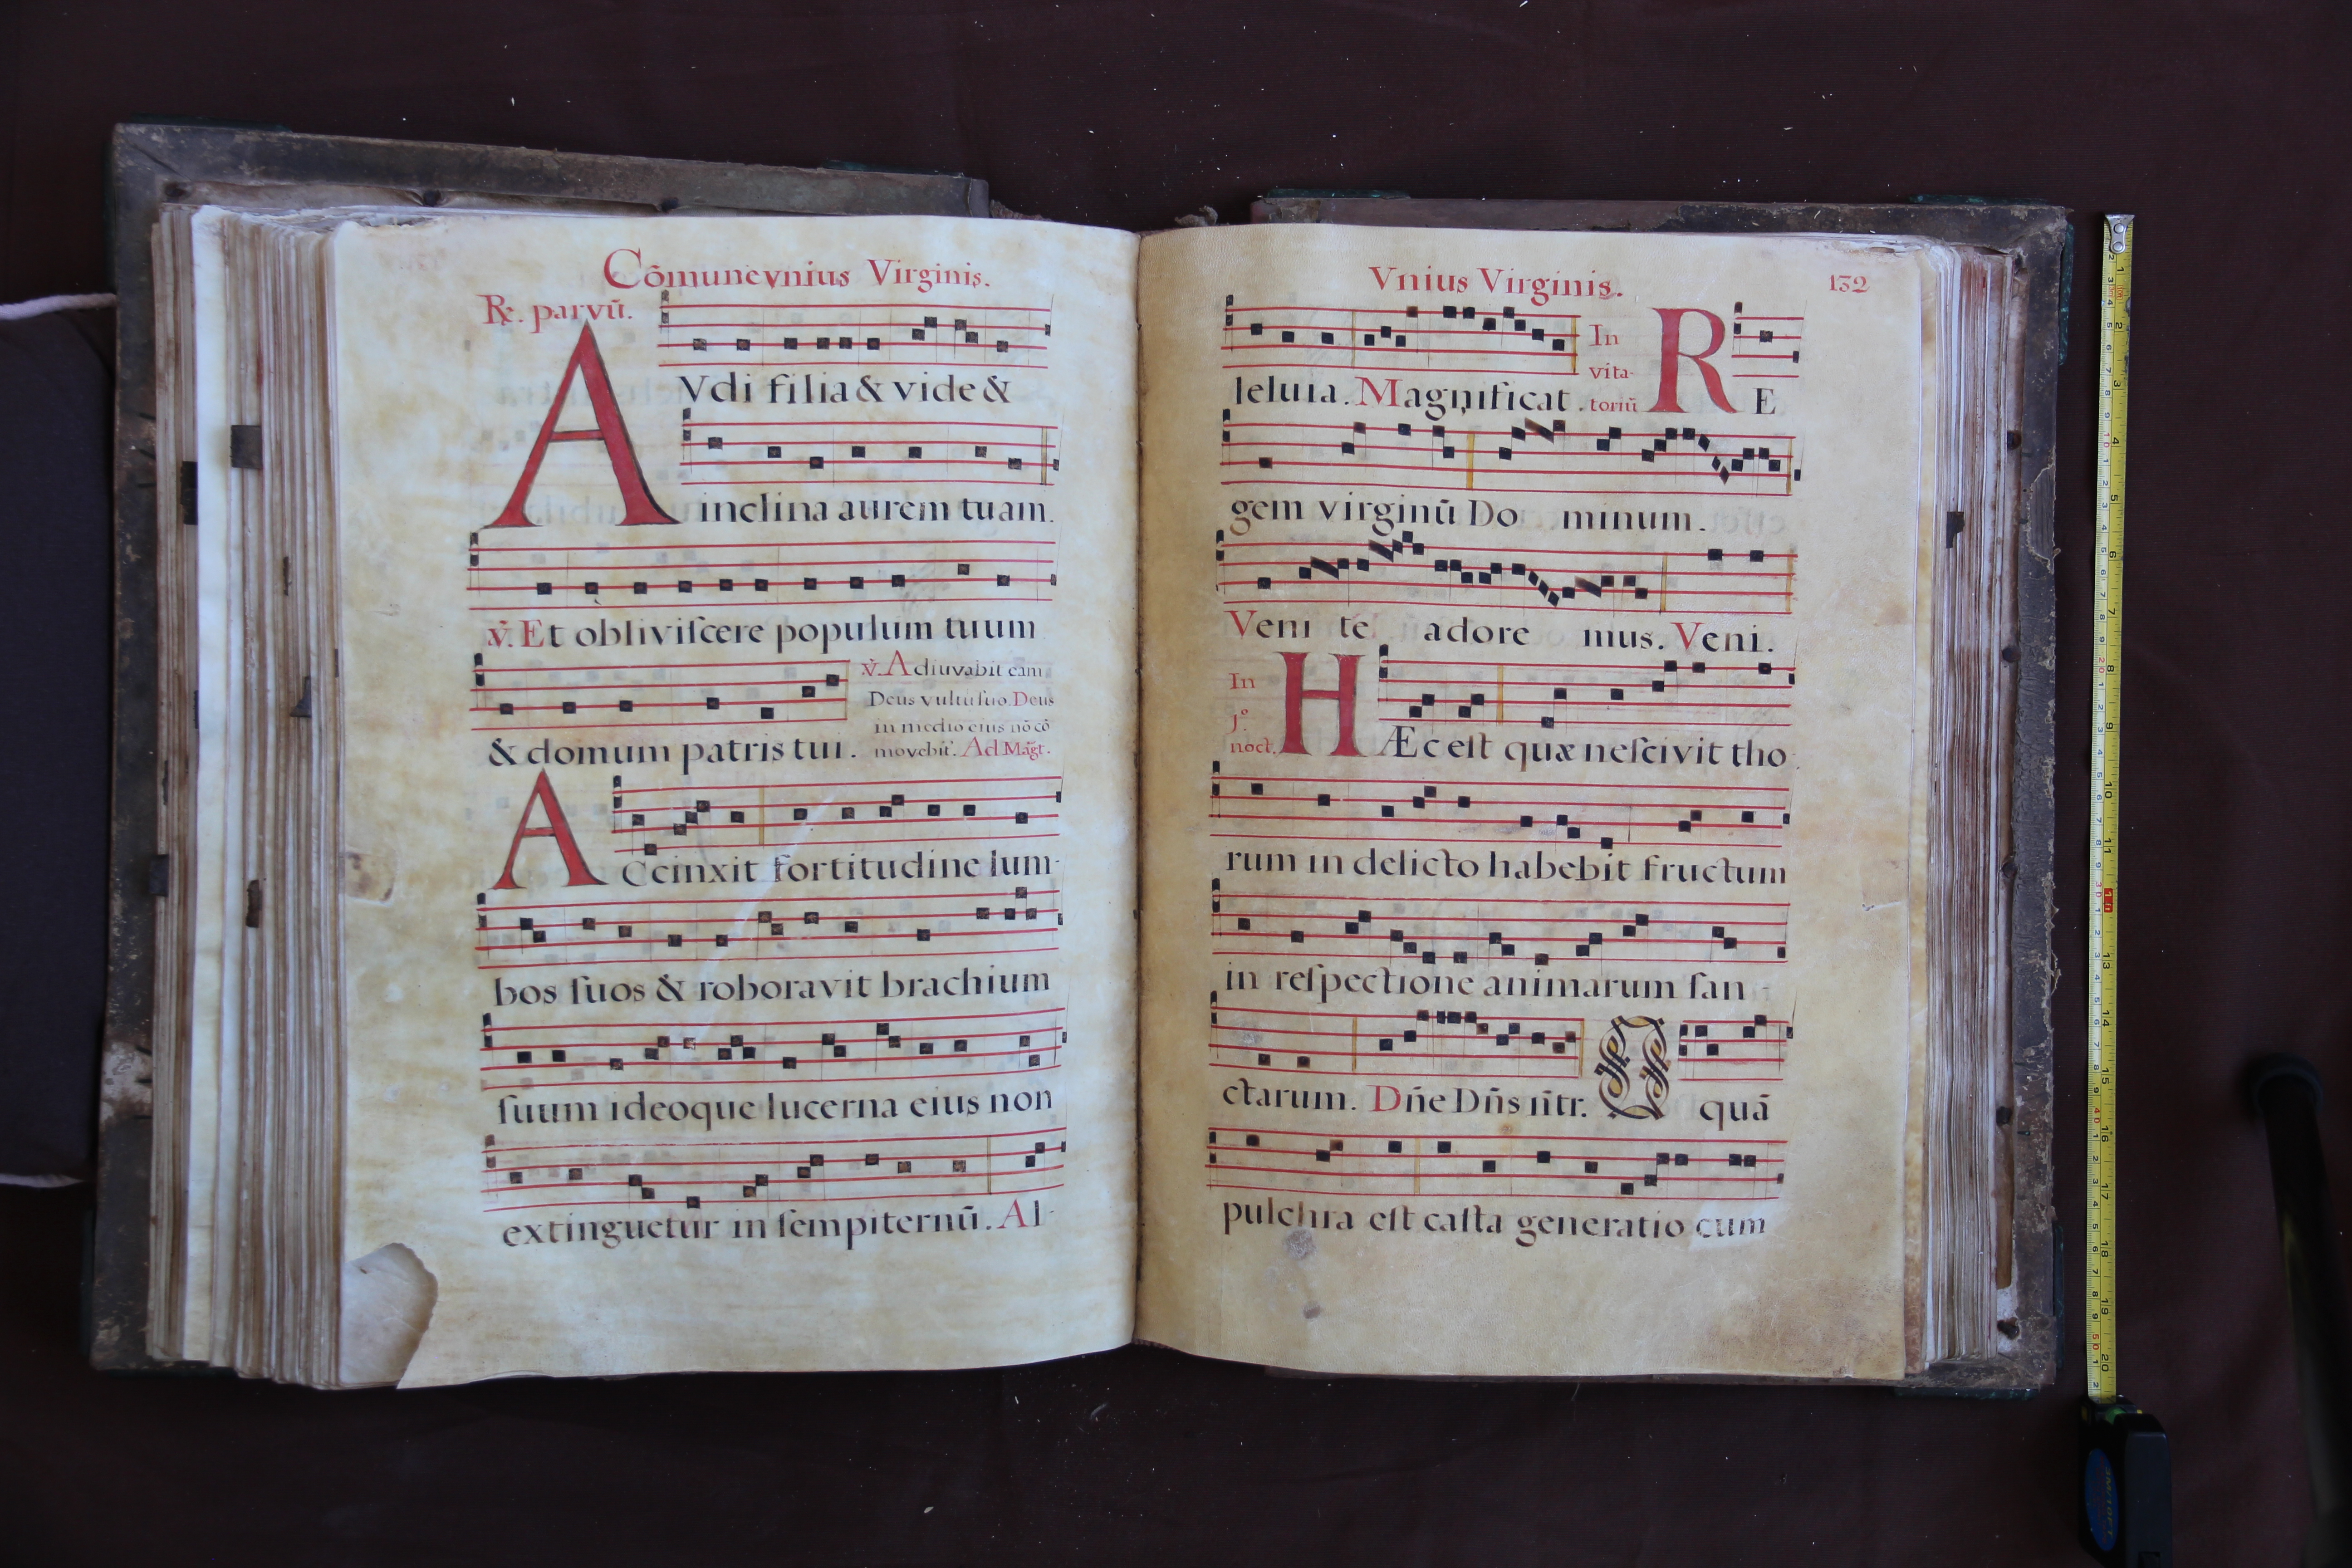 Cōmune vnius Virginis.
℟. parvū.
AVdi filia & vide &
inclina aurem tuam.
℣. Et obliviſcere populum tuum
& domum patris tui.
℣. Adiuvabit eam
Deus vultu ſuo. Deus
in medio eius nō cō
movebit. Ad Magt.
ACcinxit fortitudine lum-
bos ſuos & roboravit brachium
ſuum ideoque lucerna eius non
extinguetur in ſempiternū. Al-
Vnius Virginis.
132
leluia. Magnificat.
In
vita-
toriū
RE
gem virginū Do minum.
Veni te adore mus. Veni.
In
j.º
noct.
HÆc eſt quæ neſcivit tho-
rum in delicto habebit fructum
in reſpectione animarum ſan-
ctarum. Dñe Dñs ñtr. O quā
pulchra eſt caſta generatio cum